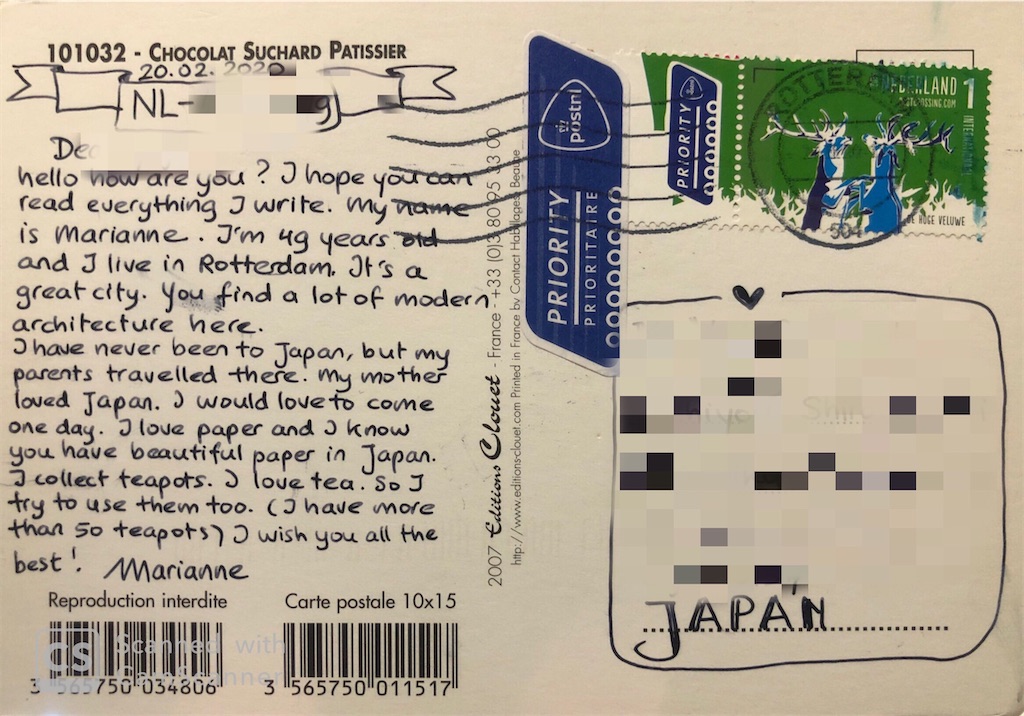 101032 - CHOCOLAT SUCHARD PATISSIER
20.02. 2020
NL-
hello how are you? I hope you can
read everything I write. My name
is Marianne. I'm 49 years old
and I live in Rotterdam. It's a
great city. You find a lot of modern
architecture here.
I have never been to Japan, but my
parents travelled there. My mother
loved Japan. I would love to come
one day. I love paper and I know
you have beautiful paper in Japan.
I collect teapots. I love tea. So I
try to use them too. (I have more
than 50 teapots) I wish you all the
best! Marianne
Reproduction interdite
Carte postale 10x15
3 565750 034806
3 565750 011517
CS Scanned with
CamScanner
2007 Editions Clouet - France - +33 (0)3 80 95 93 00
http://www.editions-clouet.com Printed in France by Contact Habillages Beaune
postnl
PRIORITY
PRIORITAIRE
postnl
PRIORITY
ROTTERDAM
NEDERLAND 1
POSTCROSSING.COM
INTERNATIONAAL
DE HOGE VELUWE
JAPAN